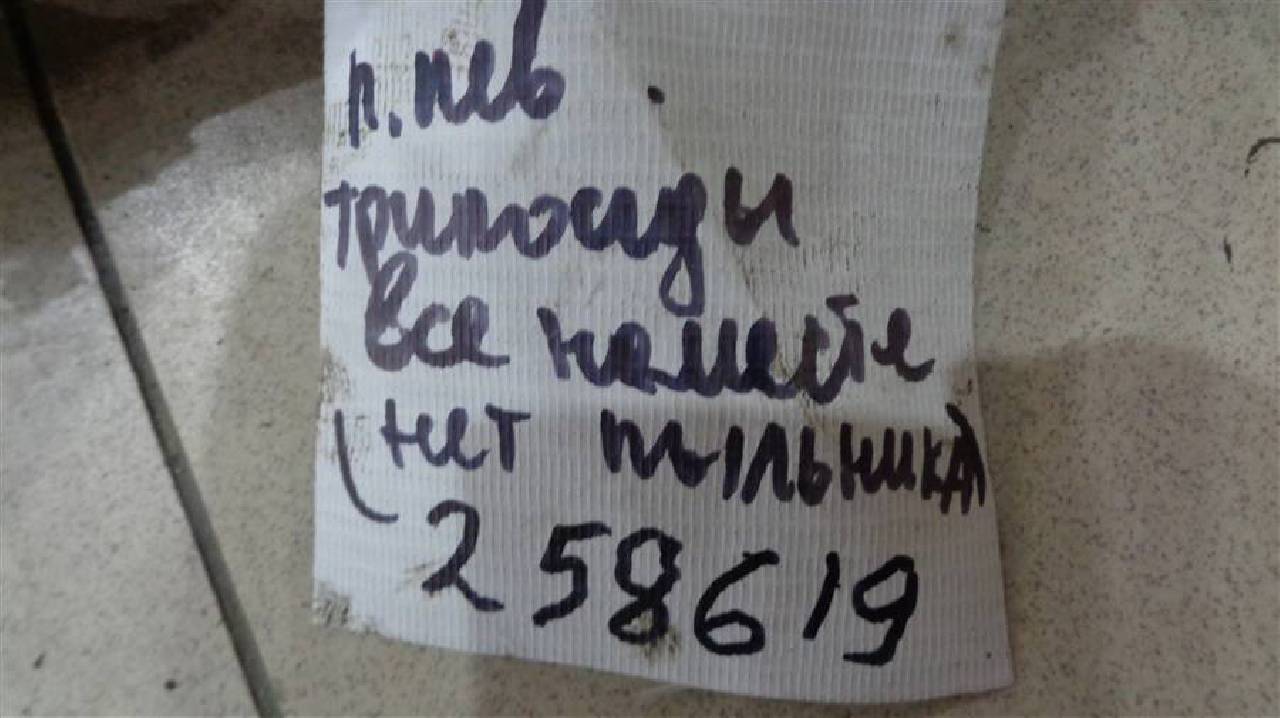 п. лев
трипоиды
все на месте
(нет пыльника)
258619